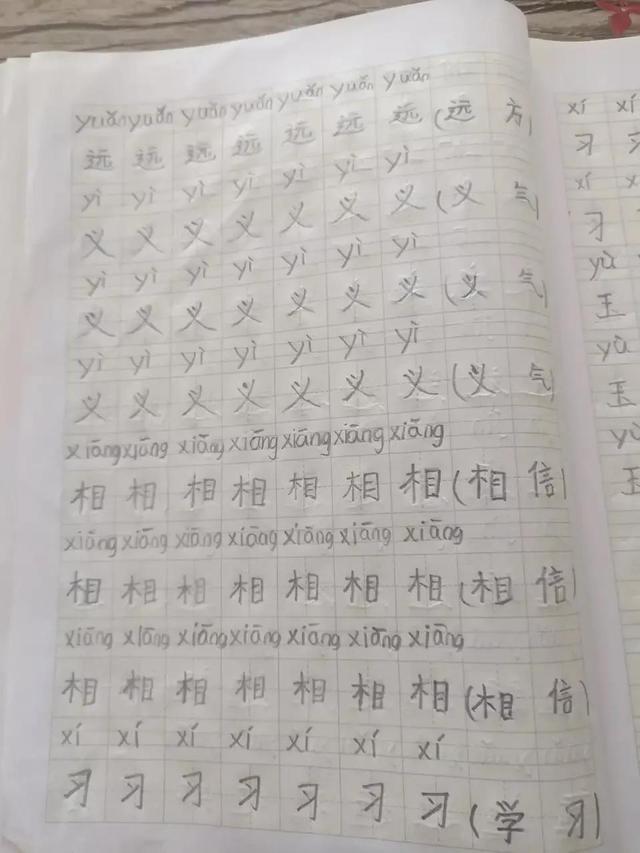 yuǎn yuǎn yuǎn yuǎn yuǎn yuǎn yuǎn
远 远 远 远 远 远 远 (远 方)
yì yì yì yì yì yì yì
义 义 义 义 义 义 义 (义 气)
yì yì yì yì yì yì yì
义 义 义 义 义 义 义 (义 气)
yì yì yì yì yì yì yì
义 义 义 义 义 义 义 (义 气)
xiāng xiāng xiāng xiāng xiāng xiāng xiāng
相 相 相 相 相 相 相 (相 信)
xiāng xiāng xiāng xiāng xiāng xiāng xiāng
相 相 相 相 相 相 相 (相 信)
xiāng xiāng xiāng xiāng xiāng xiāng xiāng
相 相 相 相 相 相 相 (相 信)
xí xí xí xí xí xí xí
习 习 习 习 习 习 习 (学 习)
xí xí
习 习
xí
习
yù
玉
yù
玉